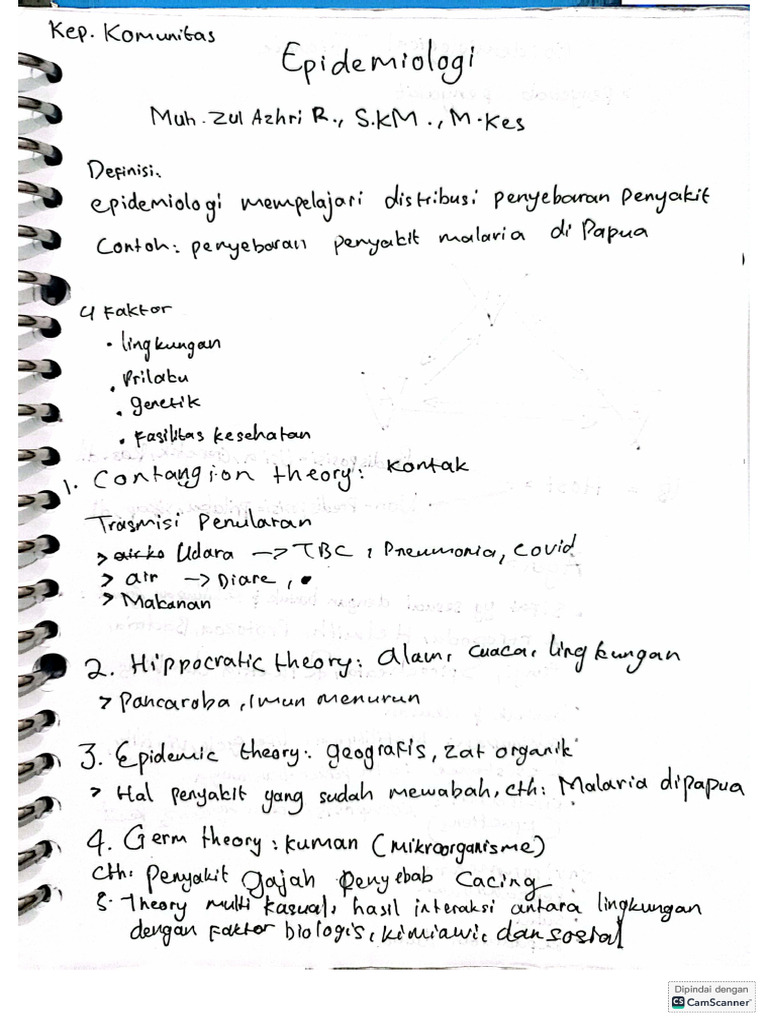 Kep. Komunitas
Epidemiologi
Muh. Zul Azhri R., S.KM., M.Kes
Definisi.
epidemiologi mempelajari distribusi penyebaran Penyakit
Contoh: penyebaran penyakit malaria di Papua
4 Faktor
• lingkungan
• Prilaku
• genetik
• Fasilitas kesehatan
1. Contangion theory: Kontak
Trasmisi Penularan
> Udara —> TBC, Pneumonia, Covid
> air —> Diare,
> Makanan
2. Hippocratic theory: alam, cuaca, lingkungan
> Pancaroba, imun menurun
3. Epidemic theory: geografis, zat organik
> Hal penyakit yang sudah mewabah, cth: Malaria dipapua
4. Germ theory: kuman (mikroorganisme)
cth: Penyakit gajah penyebab Cacing
5. Theory multi kasual, hasil interaksi antara lingkungan
dengan faktor biologis, kimiawi, dan sosial
Dipindai dengan
CS CamScanner